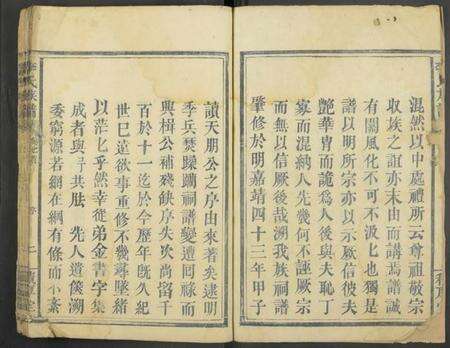 混然以中處禮所云尊祖敬宗
收族之誼亦末由而講焉譜誠
有關風化不可不汲匕也獨是
譜以明所宗亦以示厥信彼夫
艷華胄而詭爲人後與夫恥丁
寡而混納人先幾何不誣厥宗
而無以信厥後哉溯我族祠譜
肇修於明嘉靖四十三年甲子
讀天朋公之序由來者矣逮明
季兵燹蹂躪祠譜變遭囘祿而
興楫公補殘缺序失次尚留千
百於十一迄於今歷年旣久紀
世巳遠欲事重修不幾尋墜緒
以茫匕乎然幸從弟金書字集
成者與予共肷先人遺篋溯
委窮源若網在綱有條而不紊
李氏族譜